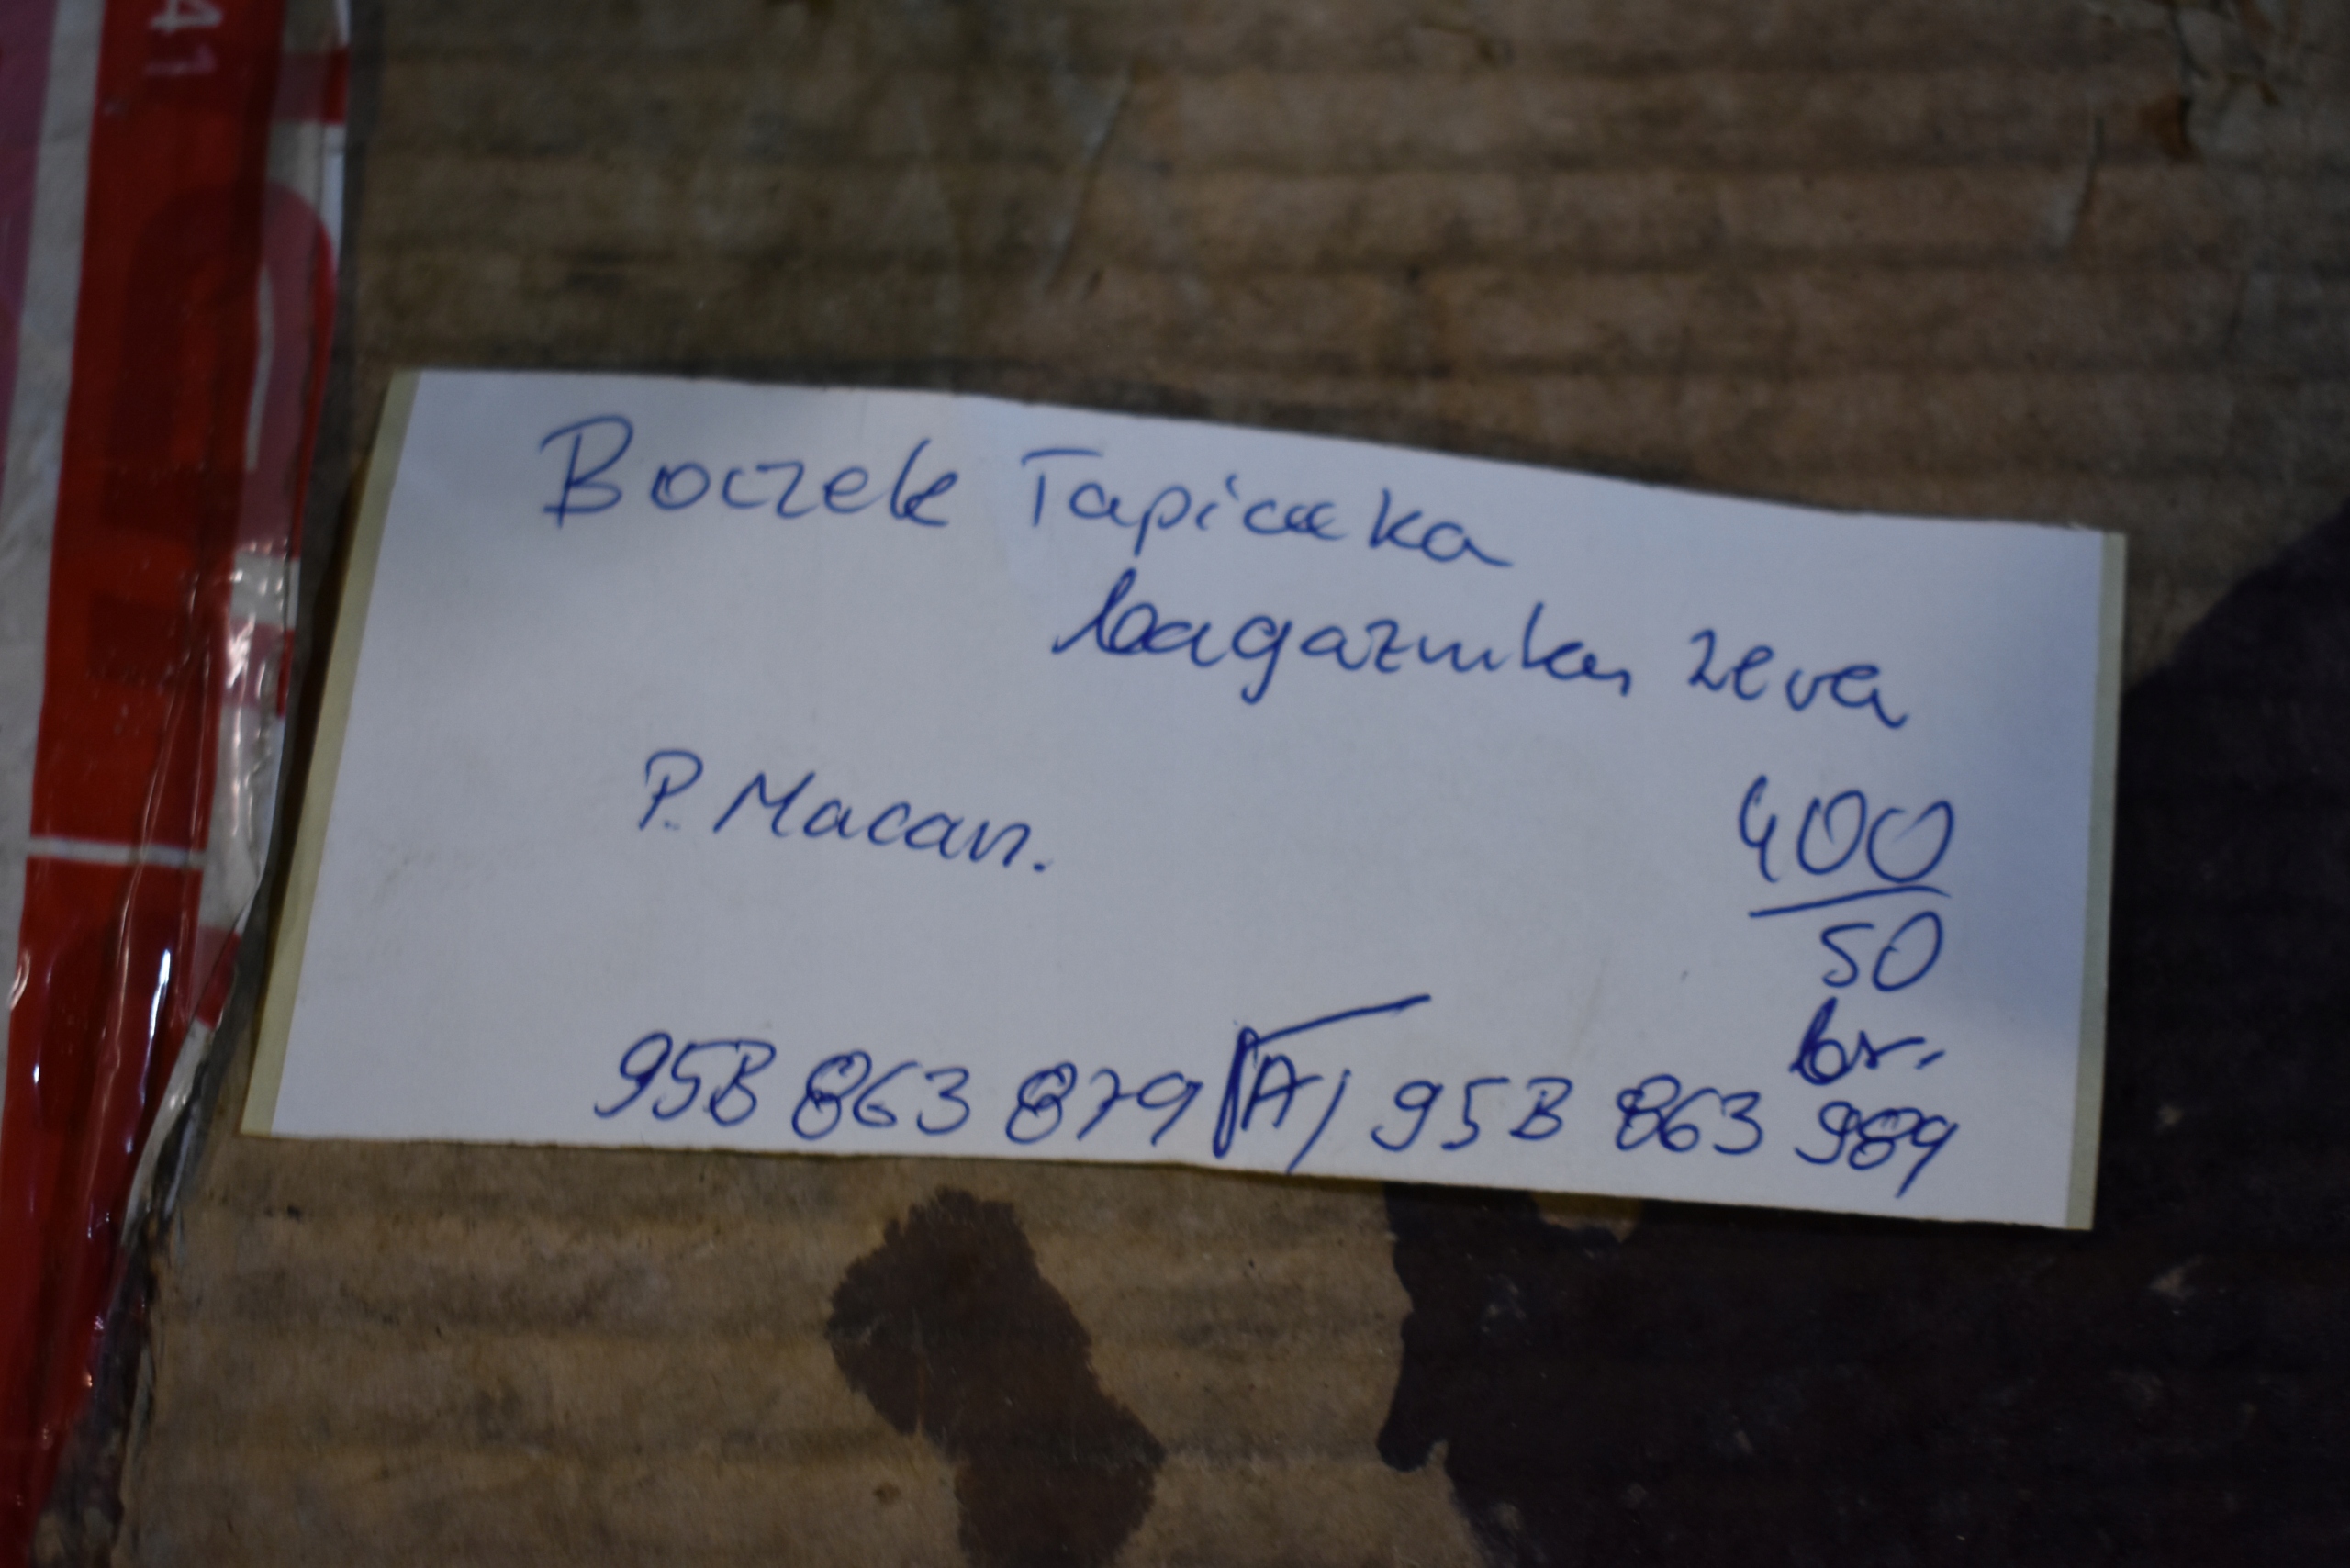 41
Boczek Tapicerka
bagaznika lewa
P. Macan.
400
50
br.
95B 863 879 A / 95B 863 989